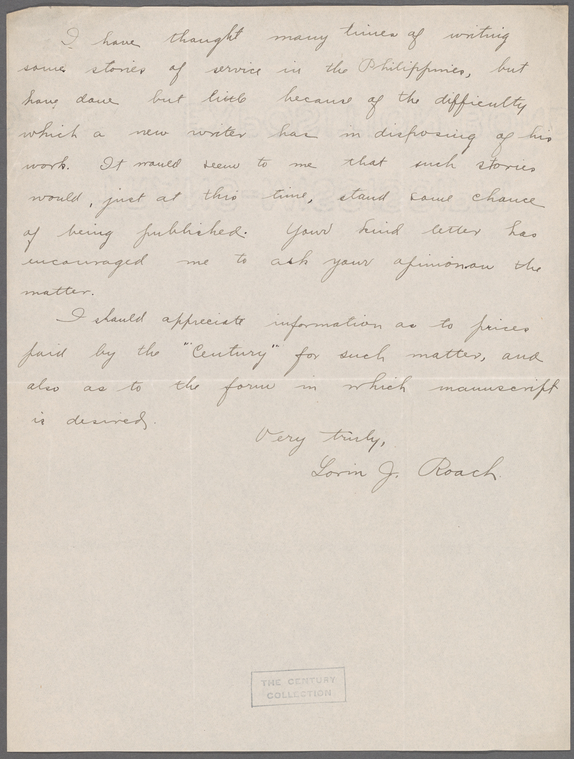 I have thought many times of writing
some stories of service in the Philippines, but
have done but little because of the difficulty
which a new writer has in disposing of his
work. It would seem to me that such stories
would, just at this time, stand some chance
of being published. Your kind letter has
encouraged me to ask your opinion on the
matter.
I should appreciate information as to prices
paid by the "Century" for such matter, and
also as to the form in which manuscript
is desired.
Very truly,
Lorin J. Roach.
THE CENTURY
COLLECTION